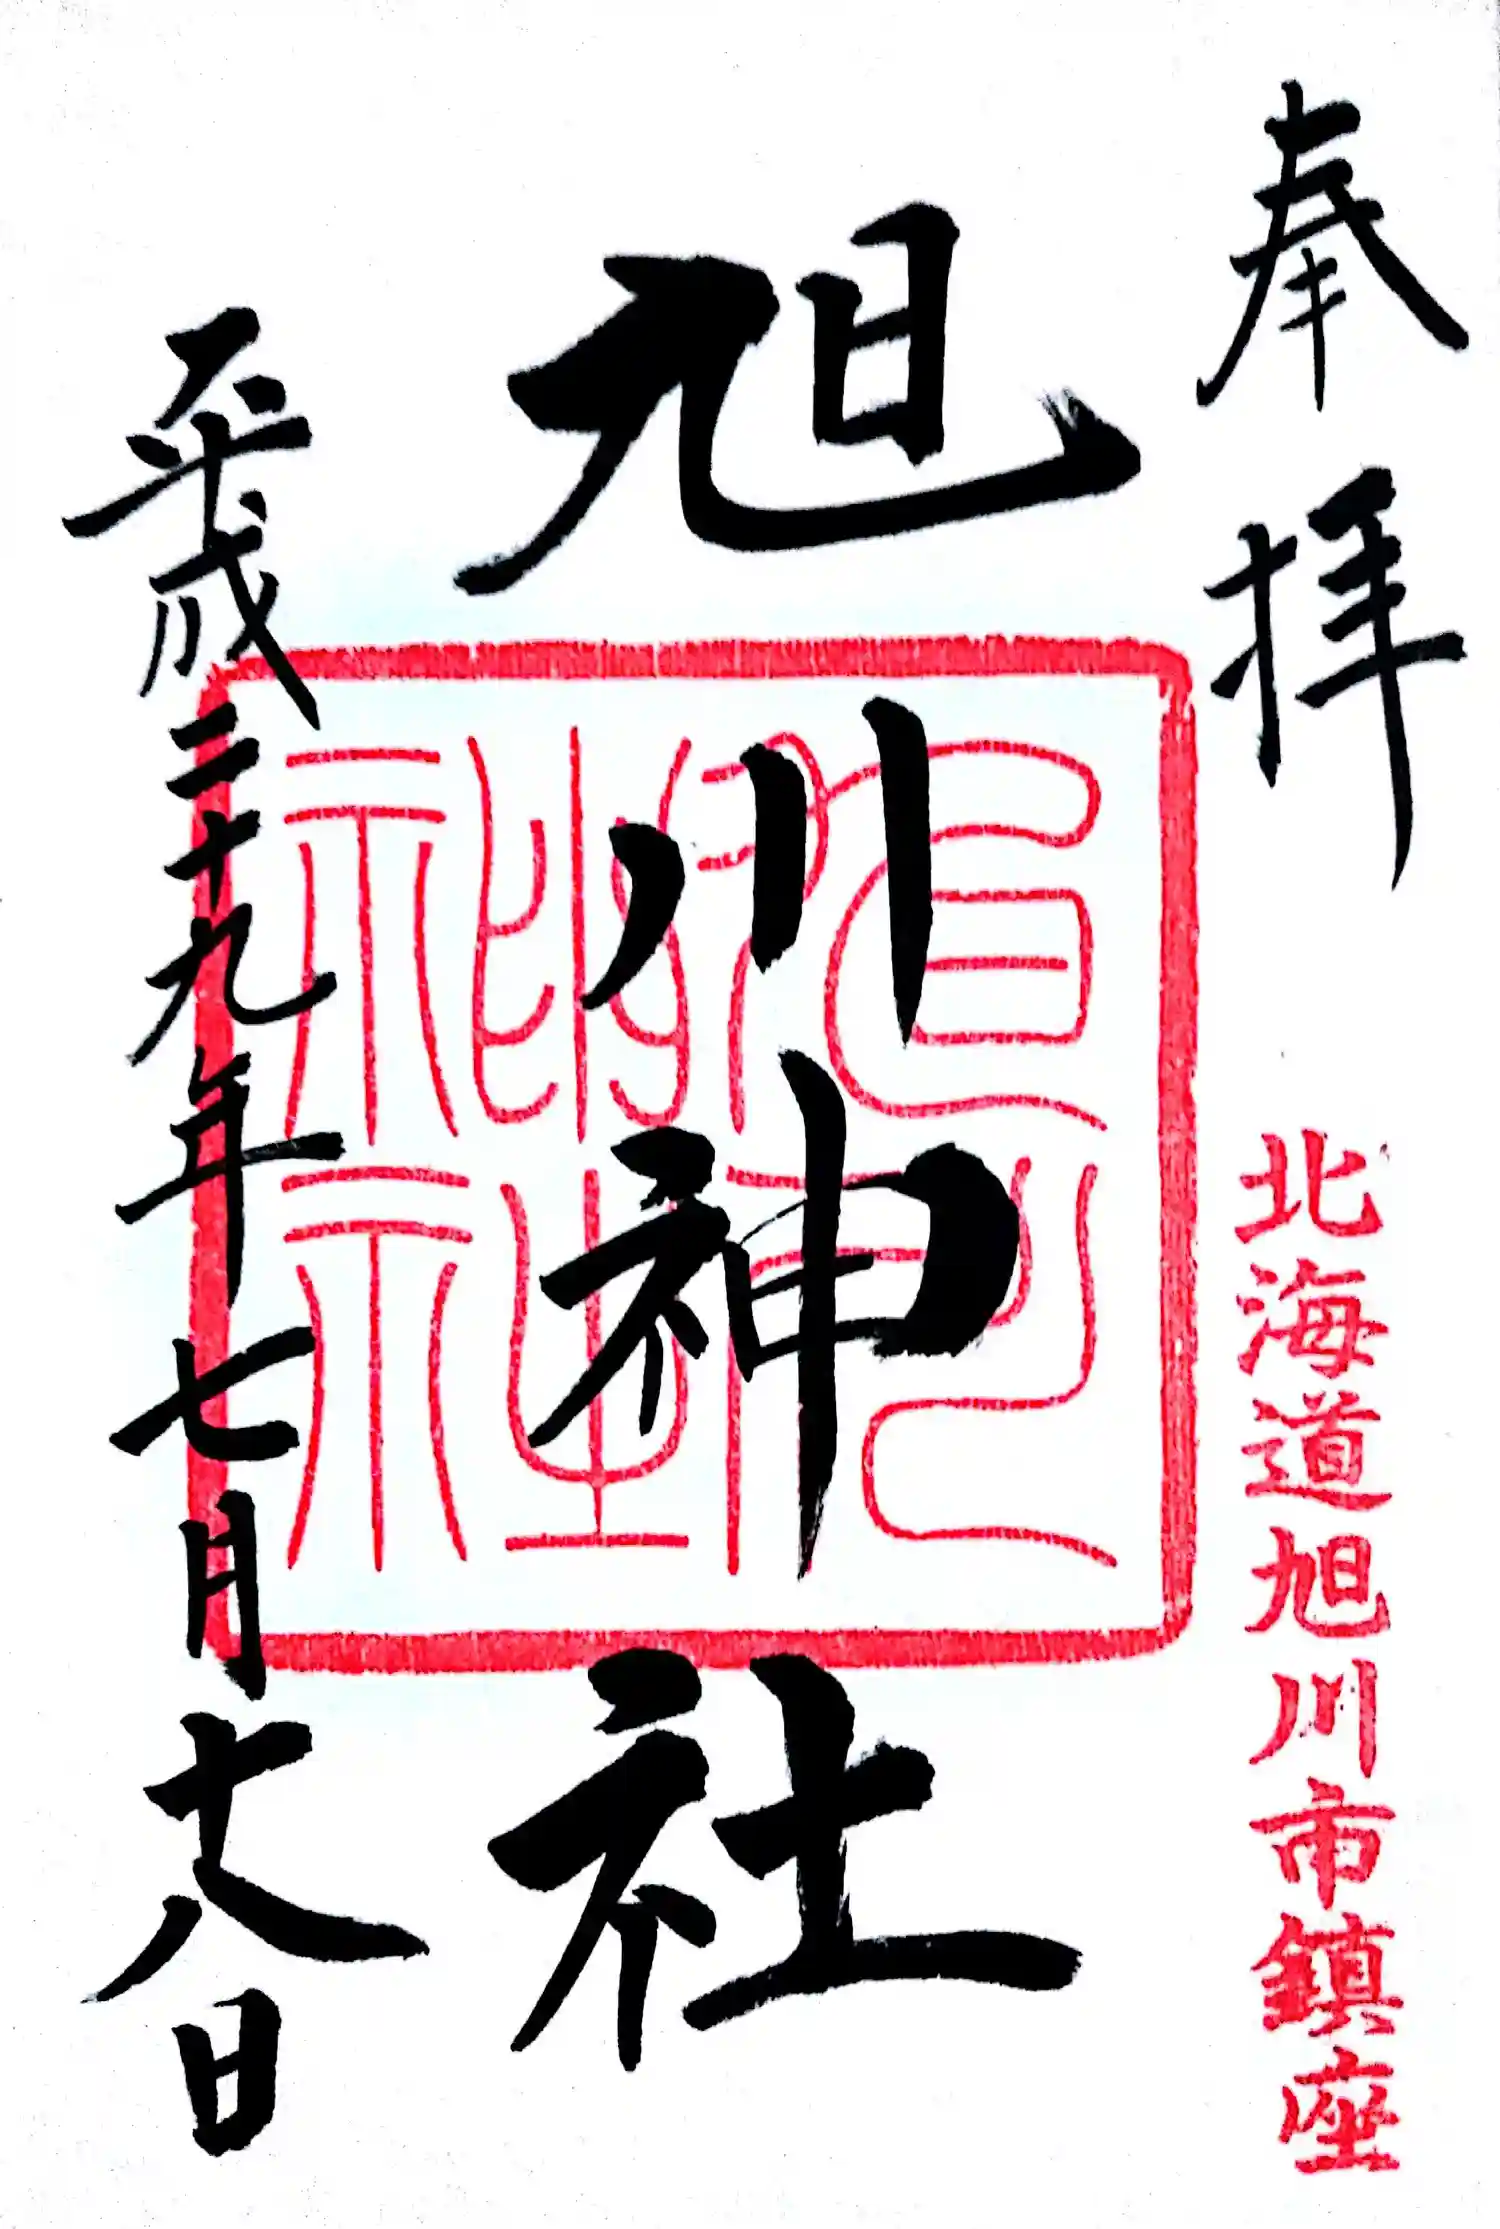 奉拝
北海道旭川市鎮座
旭川神社
旭川神社
平成二十九年七月十八日